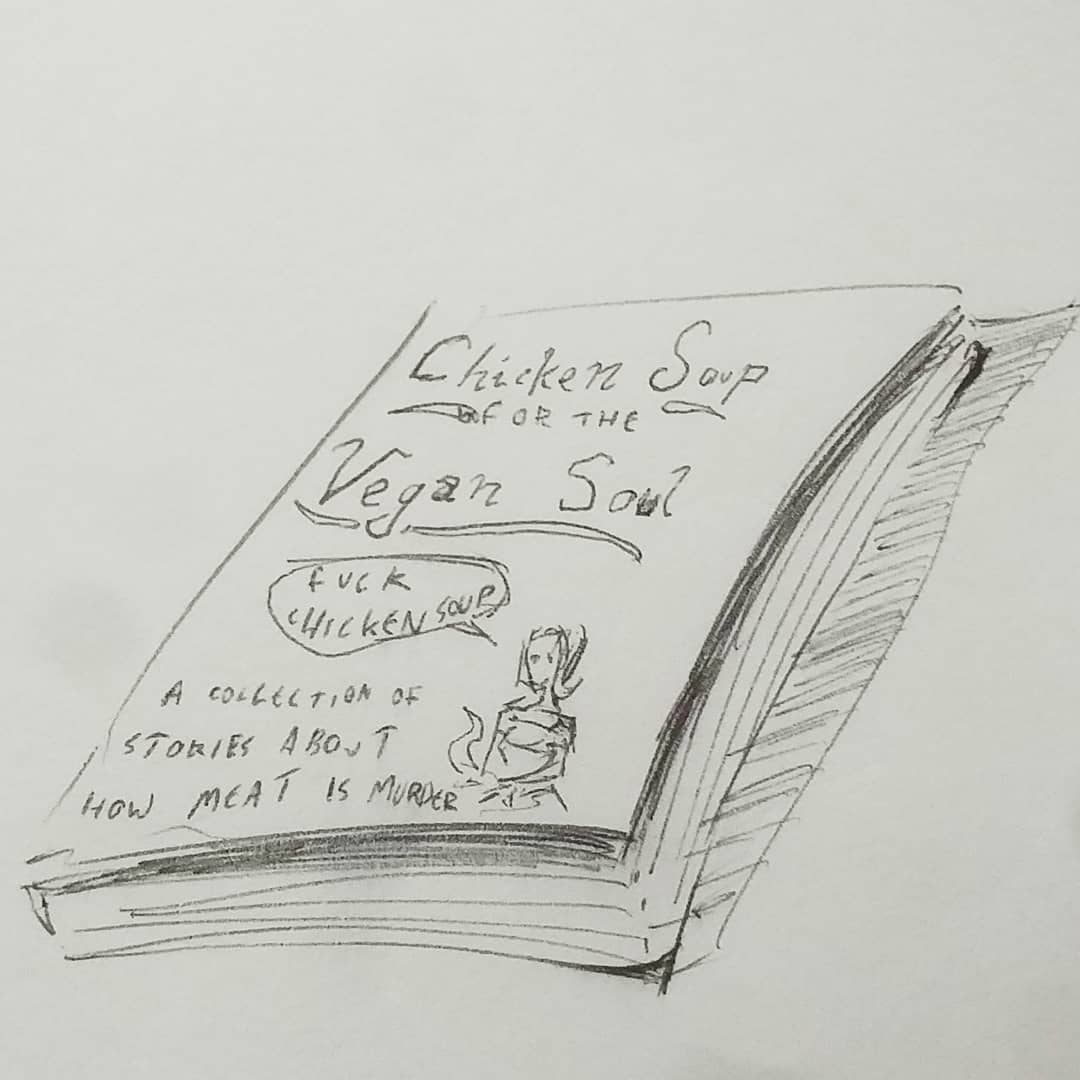 Chicken Soup
FOR THE
Vegan Soul
FUCK
CHICKEN SOUP
A COLLECTION OF
STORIES ABOUT
HOW MEAT IS MURDER